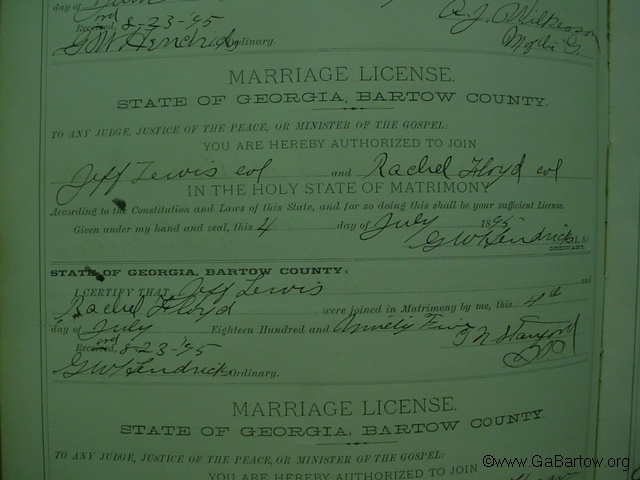 day of
Received, 8-23-'95
G W Hendricks Ordinary.
MARRIAGE LICENSE.
STATE OF GEORGIA, BARTOW COUNTY.
TO ANY JUDGE, JUSTICE OF THE PEACE, OR MINISTER OF THE GOSPEL:
YOU ARE HEREBY AUTHORIZED TO JOIN
Jeff Lewis col and Rachel Floyd col
IN THE HOLY STATE OF MATRIMONY
According to the Constitution and Laws of this State, and for so doing this shall be your sufficient License.
Given under my hand and seal, this 4 day of July 1895
G W Hendricks L.S.
ORDINARY.
STATE OF GEORGIA, BARTOW COUNTY:
I CERTIFY THAT Jeff Lewis and
Rachel Floyd were joined in Matrimony by me, this 4th
day of July Eighteen Hundred and Ninety Five
Received, 8-23-'95
G W Hendricks Ordinary.
MARRIAGE LICENSE.
STATE OF GEORGIA, BARTOW COUNTY.
TO ANY JUDGE, JUSTICE OF THE PEACE, OR MINISTER OF THE GOSPEL:
YOU ARE HEREBY AUTHORIZED TO JOIN
©www.GaBartow.org